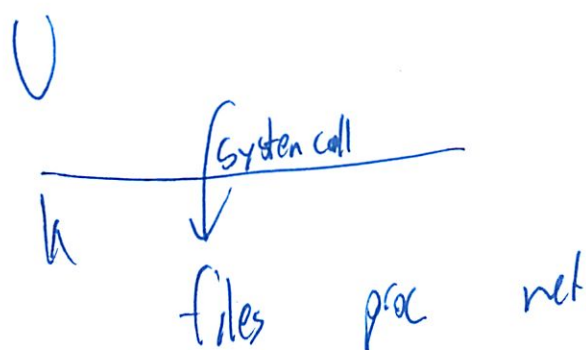 U
system call
k
files proc net